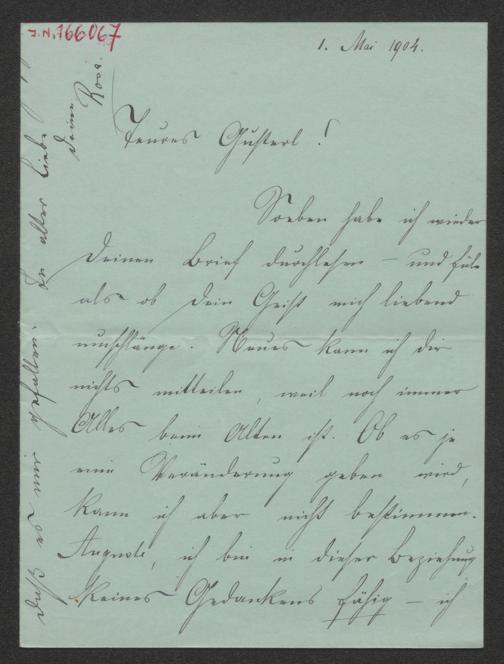 J.N. 166067
1. Mai 1904.
Teures Gusterl!
Soeben habe ich wieder
Deinen Brief durchlesen – und fühle
als ob Dein Geist mich liebend
umschlänge. Neues kann ich dir
nichts mitteilen, weil noch immer
Alles beim Alten ist. Ob es je
eine Veränderung geben wird,
kann ich aber nicht bestimmen.
Auguste, ich bin in dieser Beziehung
keines Gedankens fähig – ich
daß es mir gefallen. In aller Liebe
deine
Rosa.